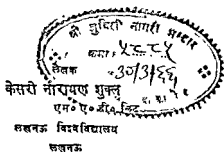 श्री जुबिली नागरी भंडार
क्रमा
लेखक
केसरी नारायण शुक्ल
एम० ए० डी० लिट
लखनऊ विश्वविद्यालय
लखनऊ